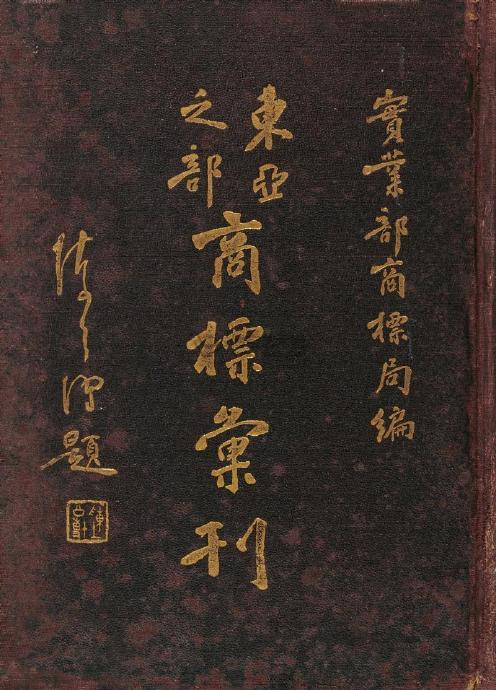 實業部商標局編
東亞之部
商標彙刊
題